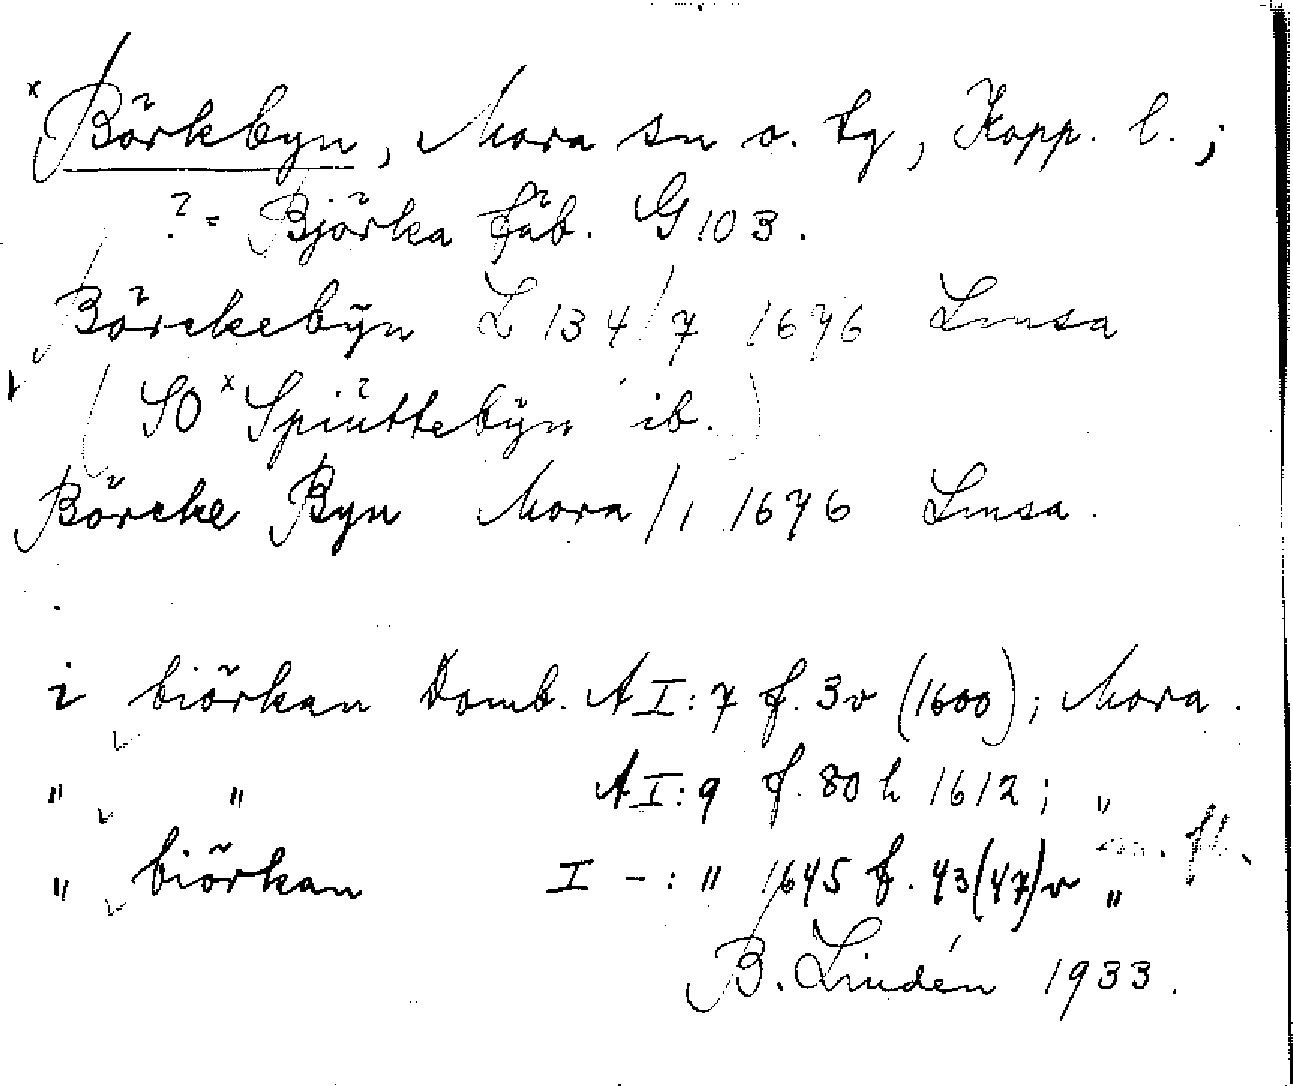 x Börkbyn, Mora sn o. tg, Kopp. l.;
? = Björka fäb. G 103.
Börckebÿn L 134/7 1676 Lmsa
(SO x Spiüttebÿn ib.)
Börcke Byn Mora/1 1676 Lmsa.
i biörkan Domb. A I:7 f. 3v (1600); Mora.
" " A I:9 f. 80 h 1612; "
" biörkan I - : " 1645 f. 43(47)v " m. fl.
B. Lindén 1933.